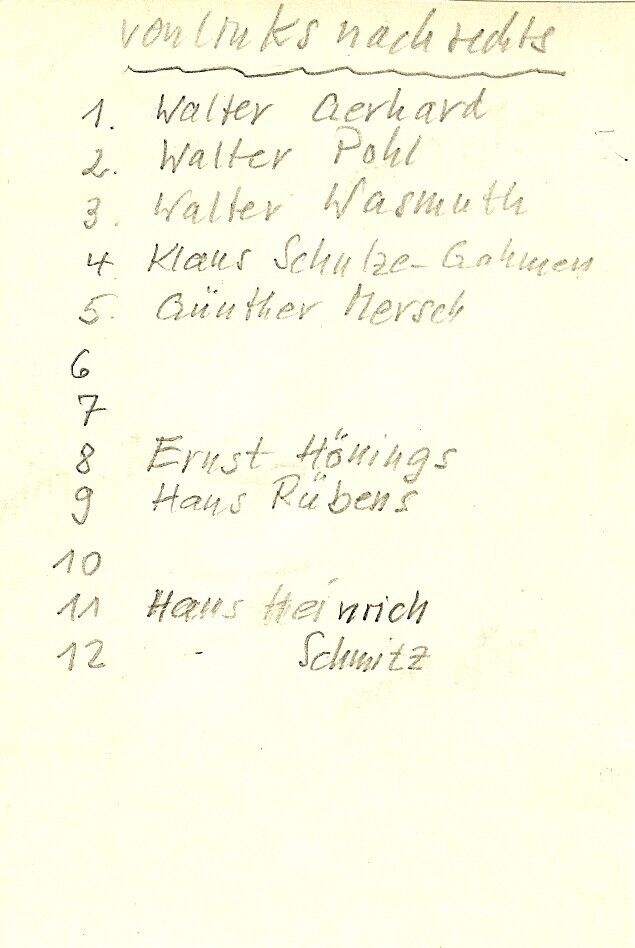 von links nach rechts
1. Walter Gerhard
2. Walter Pohl
3. Walter Wasmuth
4 Klaus Schulze-Gahmen
5. Günther Mersch
6
7
8 Ernst Hönings
9 Hans Rübens
10
11 Hans Heinrich
12 - Schmitz